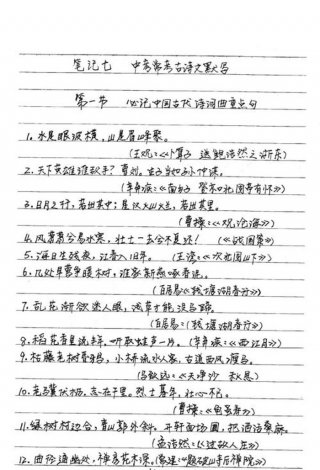 笔记七 中考常考古诗文默写
第一节 必记中国古代诗词曲重点句
1. 水是眼波横，山是眉峰聚。
(王观:《卜算子 送鲍浩然之浙东》
2. 天下英雄谁敌手？曹刘。生子当如孙仲谋。
(辛弃疾:《南乡子 登京口北固亭有怀》)
3. 日月之行，若出其中；星汉灿烂，若出其里。
(曹操:《观沧海》)
4. 风萧萧兮易水寒，壮士一去兮不复还！ (《战国策》)
5. 海日生残夜，江春入旧年。 (王湾:《次北固山下》)
6. 几处早莺争暖树，谁家新燕啄春泥。
(白居易:《钱塘湖春行》)
7. 乱花渐欲迷人眼，浅草才能没马蹄。
(白居易:《钱塘湖春行》)
8. 稻花香里说丰年。听取蛙声一片。(辛弃疾:《西江月》)
9. 枯藤老树昏鸦，小桥流水人家，古道西风瘦马。
《天净沙 秋思》
10. 老骥伏枥，志在千里。烈士暮年，壮心不已。
(曹操:《龟虽寿》)
11. 绿树村边合，青山郭外斜。开轩面场圃，把酒话桑麻。
(孟浩然:《过故人庄》)
12. 曲径通幽处，禅房花木深。(常建:《题破山寺后禅院》)